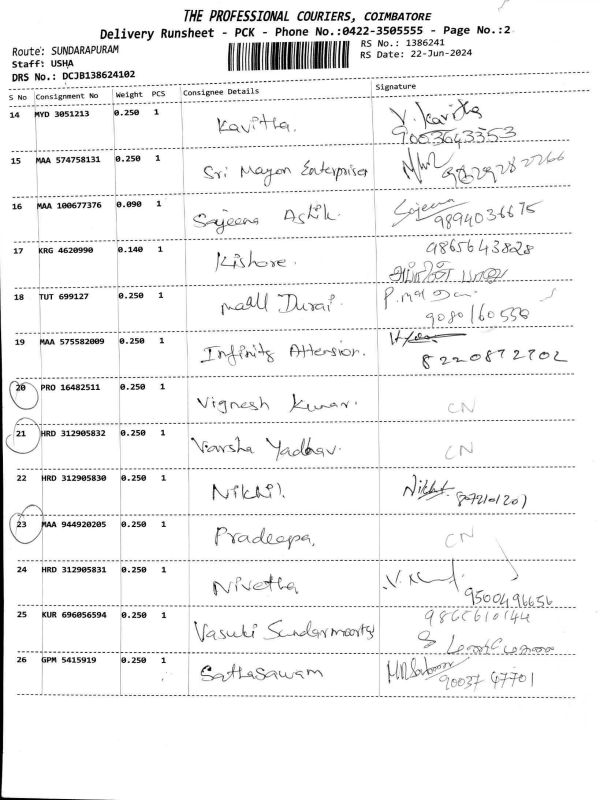 THE PROFESSIONAL COURIERS, COIMBATORE
Delivery Runsheet - PCK - Phone No.:0422-3505555 - Page No.:2
Route: SUNDARAPURAM
RS No.: 1386241
Staff: USHA
RS Date: 22-Jun-2024
DRS No.: DCJB138624102
S No Consignment No Weight PCS Consignee Details Signature
14 MYD 3051213 0.250 1 Kavitha. V. Kavitha
9003643353
15 MAA 574758131 0.250 1 Sri Mayon Enterprises
16 MAA 100677376 0.090 1 Sajeena Ashik. Sajeena
9894036675
17 KRG 4620990 0.140 1 Kishore. 9865643828
18 TUT 699127 0.250 1 Durai.
9080160556
19 MAA 575582009 0.250 1 Infinity Attension.
8220872702
20 PRO 16482511 0.250 1 Vignesh Kumar. CN
21 HRD 312905832 0.250 1 Varsha Yadhav. CN
22 HRD 312905830 0.250 1 Nikhil.
23 MAA 944920205 0.250 1 Pradeepa. CN
24 HRD 312905831 0.250 1 Nivetha
9500496656
25 KUR 696056594 0.250 1 Vasuki Sundarmoorthy 9865610144
26 GPM 5415919 0.250 1 Sathasawam
90037 47701